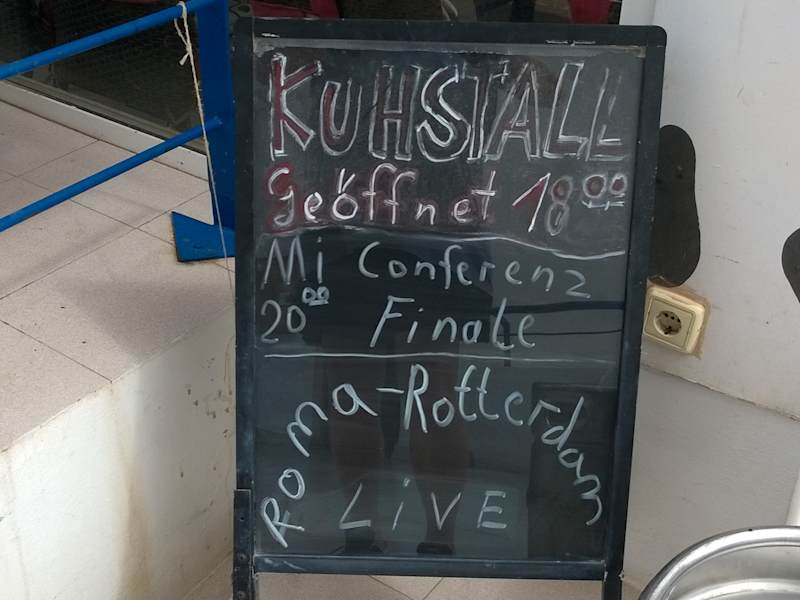 KUHSTALL
Geöffnet 18⁰⁰
Mi Conferenz
20⁰⁰ Finale
Roma-Rotterdam
LiVE